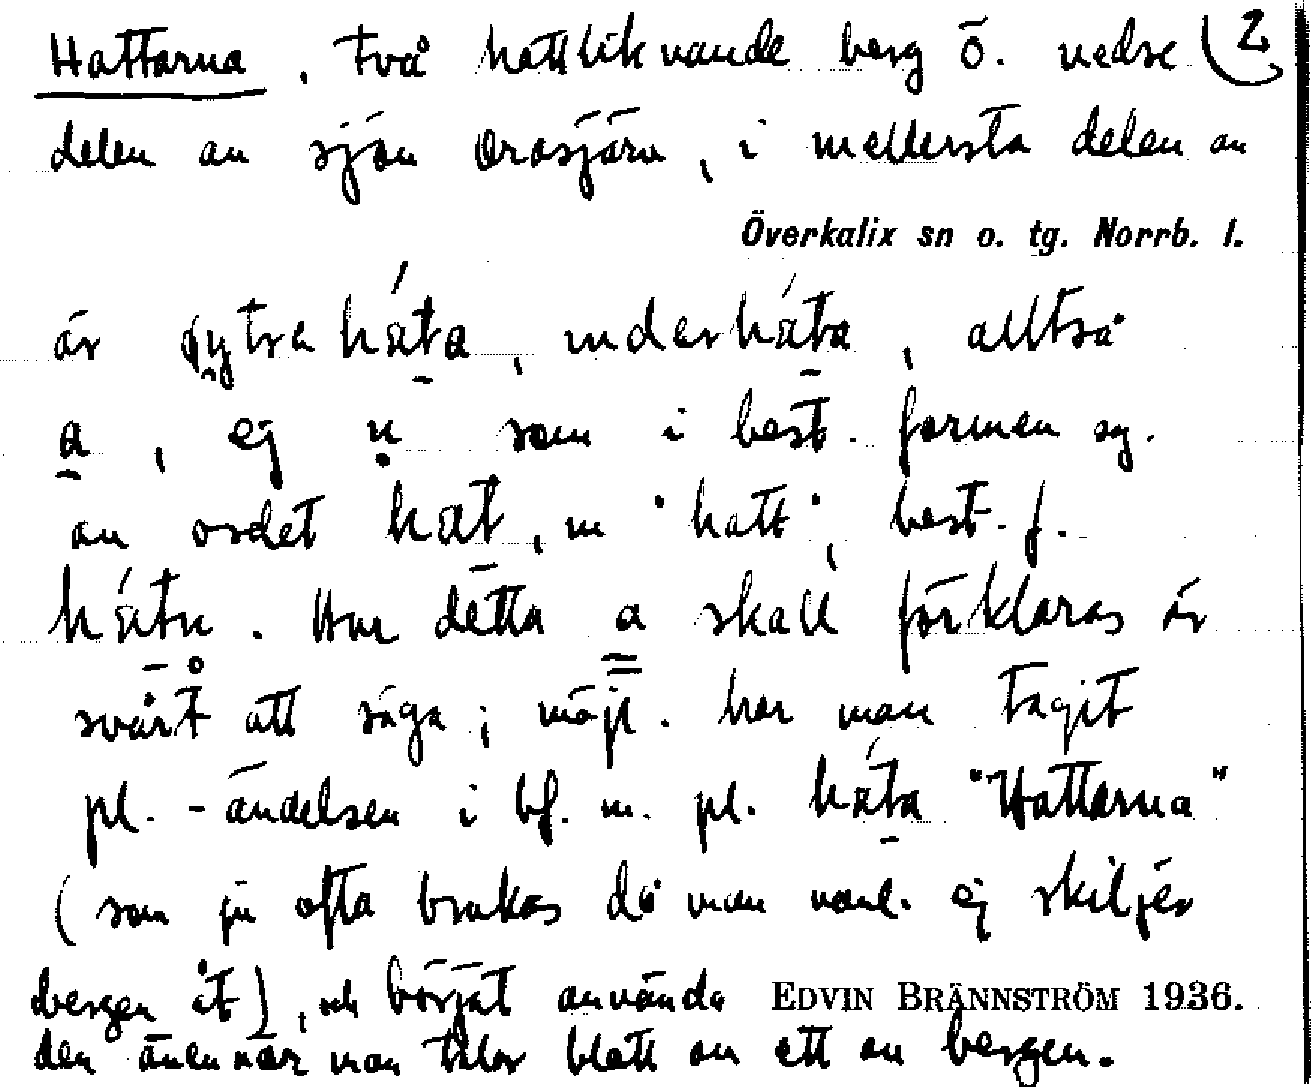 Hattarna, två hattliknande berg ö. nedre (2
delen av sjön Orasjärv, i mellersta delen av
Överkalix sn o. tg. Norrb. l.
är ytra háta, undarháta, alltså
a, ej n som i best. formen sg.
av ordet hat, m 'hatt', best. f.
hátn. Hur detta a skall förklaras är
svårt att säga; möjl. har man tagit
pl. -ändelsen i bf. m. pl. háta "Hattarna"
(som ju ofta brukas då man vanl. ej skiljer
bergen åt), och börjat använda EDVIN BRÄNNSTRÖM 1936.
den även när man talar blott om ett av bergen.